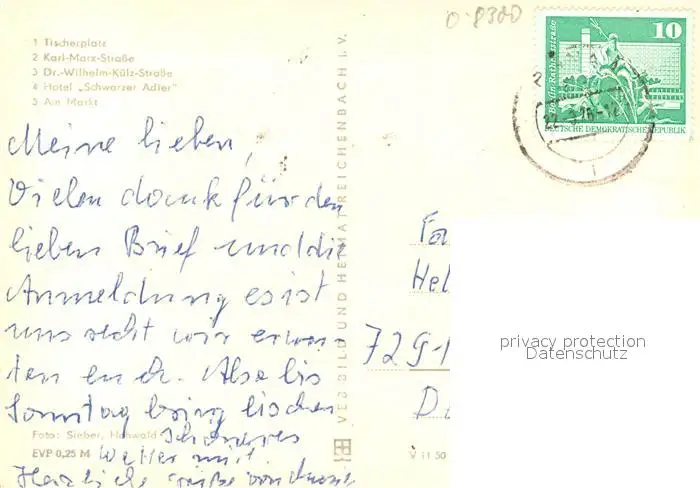 0-8300
1 Tischerplatz
2 Karl-Marx-Straße
3 Dr.-Wilhelm-Külz-Straße
4 Hotel „Schwarzer Adler"
5 Am Markt
10
Berlin, Rathausstraße
DEUTSCHE DEMOKRATISCHE REPUBLIK
Meine lieben,
Vielen dank für den
lieben Brief und die
Anmeldung es ist
uns recht wir erwar
ten euch. Also bis
Sonntag bring bischen
schönres
Wetter mit
Herzliche Grüße von
VEB BILD UND HEIMAT REICHENBACH i. V.
Fa
Hel
729-1
D
privacy protection
Datenschutz
Foto: Sieber, Hohwald
EVP 0,25 M
V 11 50